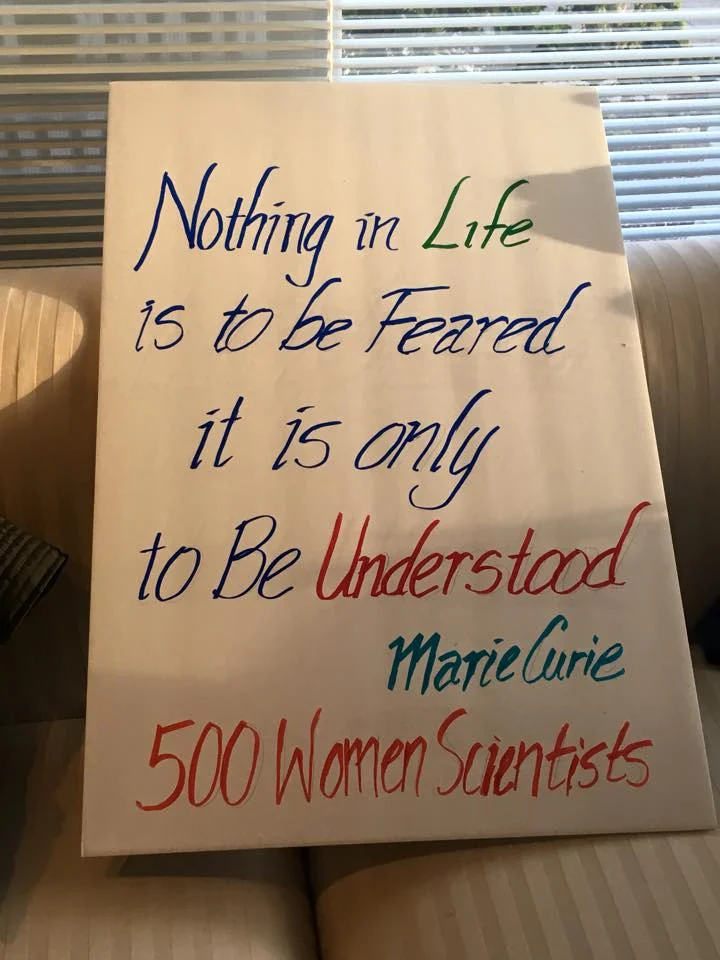 Nothing in Life
is to be Feared
it is only
to Be Understood
Marie Curie
500 Women Scientists